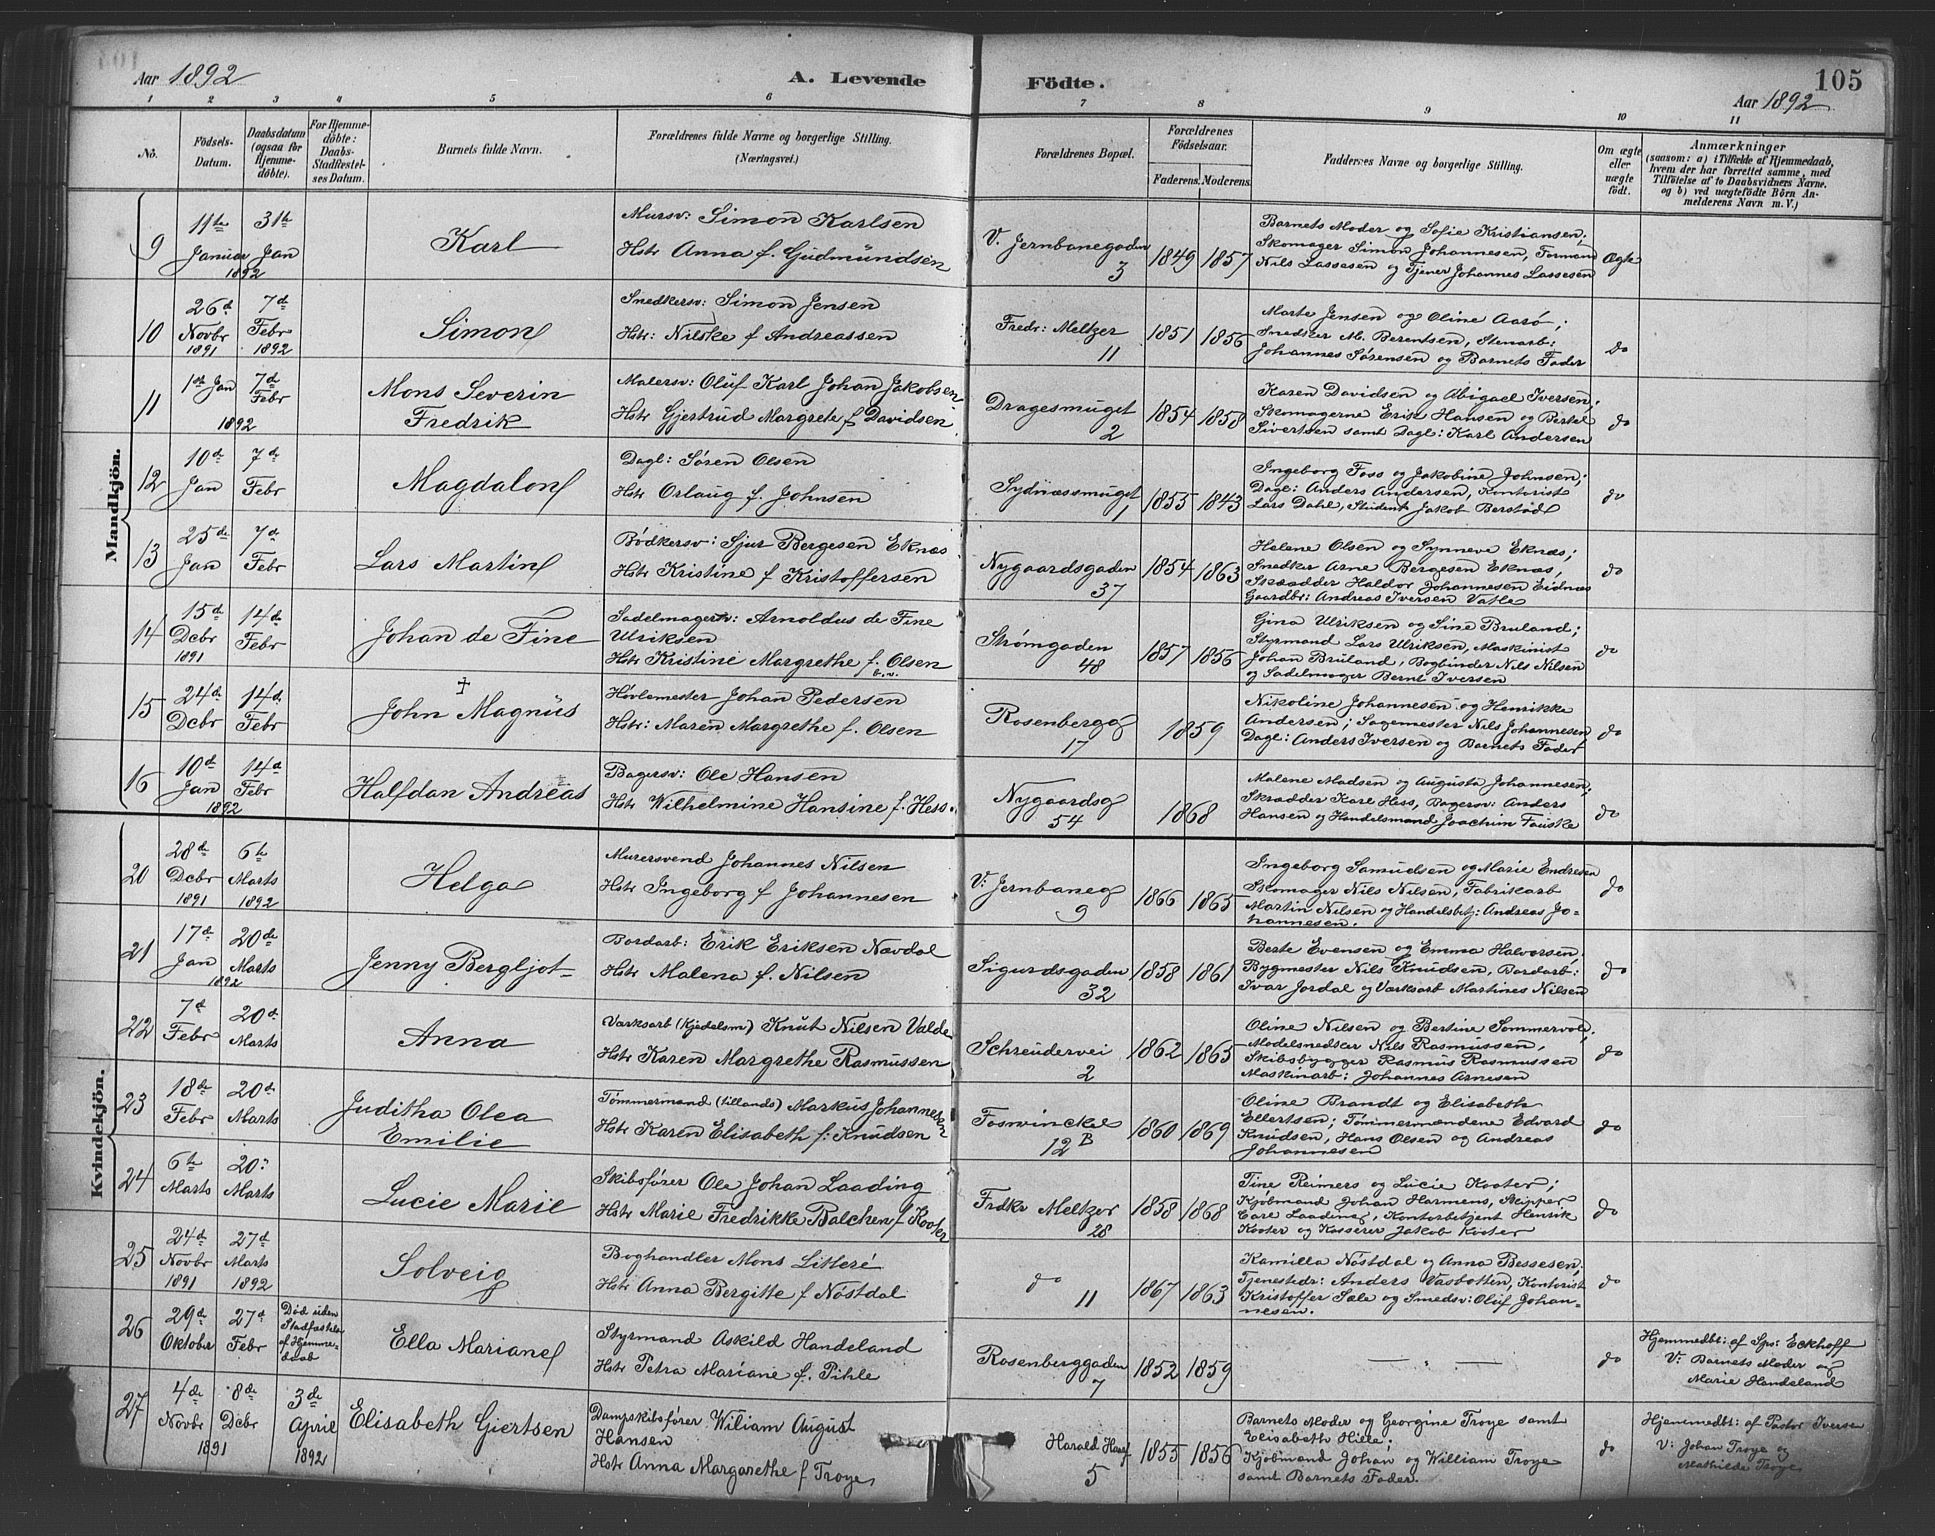 Aar 1892
A. Levende
Födte.
105
Aar 1892
1 2 3 4 5 6 7 8 9 10 11
No.
Födsels-
Datum.
Daabsdatum
(ogsaa for
Hjemme-
döbte).
For Hjemme-
döbte:
Daabs-
Stadfæstel-
ses Datum.
Barnets fulde Navn.
Forældrenes fulde Navne og borgerlige Stilling.
(Næringsvei.)
Forældrenes Bopæl.
Forældrenes
Födselsaar.
Faderens. Moderens.
Faddernes Navne og borgerlige Stilling.
Om ægte
eller
uægte
födt.
Anmærkninger
(saasom: a) i Tilfælde af Hjemmedaab,
hvem der har forrettet samme, med
Tilföielse af to Daabsvidners Navne.
og b) ved uægtefödte Börn An-
melderens Navn m. V.)
Mandkjön.
9
11te Januar
31te Jan
1892
Karl
Mursv: Simon Karlsen
Hstr Anna f. Gudmundsen
V. Jernbanegaden
3
1849 1857
Barnets Moder og Sofie Kristiansen;
Skomager Simon Johannesen, Formand
Nils Lassesen og Tjener Johannes Lassesen
Ægte
10
26d Novbr 1891
7d Febr 1892
Simon
Snedkersv: Simon Jensen
Hstr: Nilske f Andreassen
Fredr: Meltzer
11
1851 1856
Marte Jensen og Oline Aarö;
Snedker M. Berentsen, Stenarb:
Johannes Sörensen og Barnets Fader
do
11
1ste Jan
7d Febr
1892
Mons Severin
Fredrik
Malersv: Oluf Karl Johan Jakobsen
Hstr Gjertrud Margrete f Davidsen
Dragesmuget
2
1854 1858
Karen Davidsen og Abigael Iversen;
Skomagerne Erik Hansen og Bertel
Sivertsen samt Dagl: Karl Andersen
do
12
10d Jan
7d Febr
Magdalon
Dagl: Sören Olsen
Hstr Orlaug f. Johnsen
Sydnæssmuget
1
1855 1843
Ingeborg Foss og Jakobine Johnsen;
Dagl: Anders Andersen, Kontorist
Lars Dahl, Student Jakob Berstad
do
13
25de Jan
7d Febr
Lars Martin
Bödkersv: Sjur Bergesen Eknæs
Hstr Kristine f Kristoffersen
Nygaardsgaden
37
1854 1863
Helene Olsen og Synneve Eknæs;
Snedker Arne Bergesen Eknæs,
Skrædder Haldor Johannesen Eidnæs
Gaardbr: Andreas Iversen Vatle
do
14
15d Dcbr 1891
14de Febr
Johan de Fine
Sadelmagerh: Arnoldus de Fine
Ulriksen
Hstr Kristine Margrethe f. Olsen
Strömgaden
48
1857 1856
Gina Ulriksen og Sine Bruland;
Styrmand Lars Ulriksen, Maskinist
Johan Bruland, Bogbinder Nils Nilsen
og Sadelmager Bernt Iversen
do
15
24d Dcbr
14d Febr
†
John Magnus
Hövlemester Johan Pedersen
Hstr: Maren Margrethe f. Olsen
Rosenbergg
17
1859
Nikoline Johannesen og Henrikke
Andersen; Sagemester Nils Johannesen,
Dagl: Anders Iversen og Barnets Fader
do
16
10d Jan
14d Febr
1892
Halfdan Andreas
Bagersv: Ole Hansen
Hstr Wilhelmine Hansine f. Hess.
Nygaardsg
54
1868
Malene Madsen og Augusta Johannesen;
Skrædder Karl Hess, Bagersv: Anders
Hansen og Handelsmand Joachim Fauske
do
Kvindekjön.
20
28d Dcbr 1891
6te Marts 1892
Helga
Murersvend Johannes Nilsen
Hstr Ingeborg f Johannesen
V: Jernbaneg
9
1866 1865
Ingeborg Samudsen og Marie Endresen
Skomager Nils Nilsen, Fabrikarb
Martin Nilsen og Handelsbetj: Andreas Jo-
hannesen.
do
21
17d Jan
20de Marts
1892
Jenny Bergljot
Bordarb: Erik Eriksen Nævdal
Hstr Malena f. Nilsen
Sigurdsgaden
32
1858 1861
Berte Evensen og Emma Halvorsen;
Bygmester Nils Knudsen, Bordarb:
Ivar Jordal og Værksarb Martines Nilsen
do
22
7d Febr
20d Marts
Anna
Værksarb (Kjedelsm) Knut Nilsen Valde
Hstr Karen Margrethe Rasmussen
Schreudervei
2
1862 1865
Oline Nilsen og Bertine Sommervold;
Modelsnedker Nils Rasmussen,
Skibsbygger Rasmus Rasmussen
Maskinarb: Johannes Arnesen
do
23
18de Febr
20d Marts
Juditha Olea
Emilie
Tömmermand (tillands) Markus Johannesen
Hstr Karen Elisabeth f: Knudsen
Foswinckel
12 B
1860 1869
Oline Brandt og Elisabeth
Ellertsen; Tömmermændene Edvard
Knudsen, Hans Olsen og Andreas
Johannesen
do
24
6te Marts
20: Marts
Lucie Marie
Skibsförer Ole Johan Laading
Hstr Marie Fredrikke Balchen f Kooter
Frdkr Meltzer
28
1858 1868
Tine Reimers og Lucie Kooter;
Kjöbmand Johan Harmens, Skipper
Carl Laading, Kontorbetjent Henrik
Kooter og Kasserer Jakob Kooter
do
25
24d Novbr 1891
27d Marts 1892
Solveig
Boghandler Mons Litleré
Hstr Anna Bergitte f Nöstdal
do
11
1867 1863
Kamilla Nöstdal og Anna Bessesen;
Tjenestedr: Anders Vasbotten, Kontorist
Kristoffer Sæle og Smedsv: Oluf Johan-
nesen.
do
26
29d Oktober
27d Febr
Död uden
Stadfæstelse
af Hjemme-
daab
Ella Mariane
Styrmand Askild Handeland
Hstr Petra Mariane f. Pihle
Rosenberggaden
7
1852 1859
— " —
do
Hjemmedbt: af Spr Eckhoff
V: Barnets Moder og
Marie Handeland
27
4de Novbr
8de Dcbr
1891
3de April 1892
Elisabeth Giertsen
Dampskibsförer Wiliam August
Hansen
Hstr Anna Margarethe f Troye
Harald Haarf
5
1855 1856
Barnets Moder og Georgine Troye samt
Elisabeth Hille;
Kjöbmand Johan og William Troye
samt Barnets Fader.
do
Hjemmedbt: af Pastor Iversen
V: Johan Troye og
Mathilde Troye